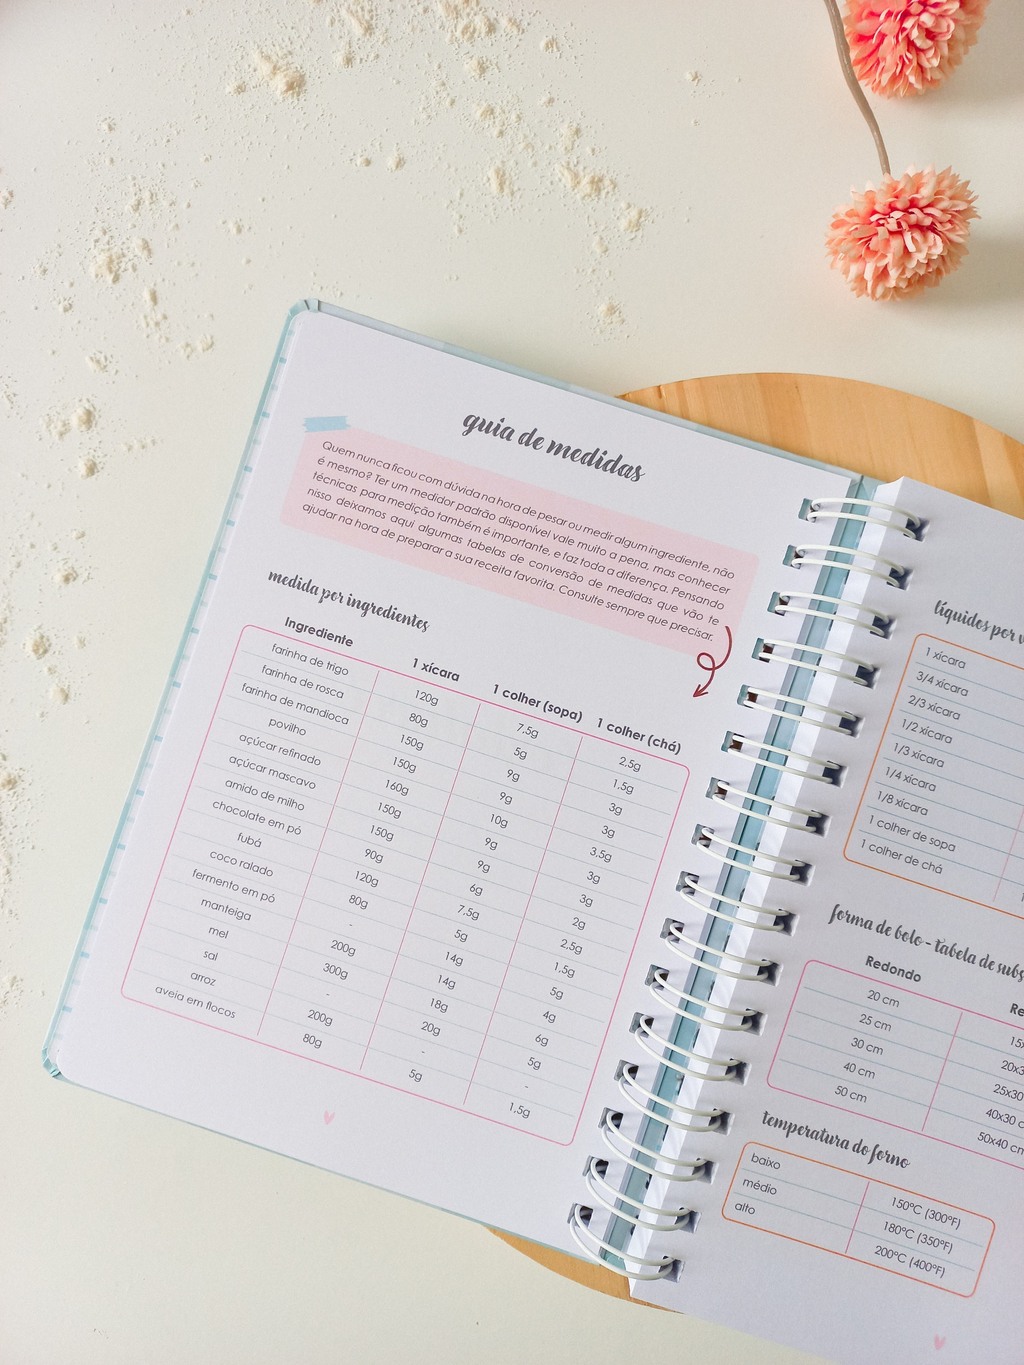 guia de medidas
Quem nunca ficou com dúvida na hora de pesar ou medir algum ingrediente, não
é mesmo? Ter um medidor padrão disponível vale muito a pena, mas conhecer
técnicas para medição também é importante, e faz toda a diferença. Pensando
nisso deixamos aqui algumas tabelas de conversão de medidas que vão te
ajudar na hora de preparar a sua receita favorita. Consulte sempre que precisar.
medida por ingredientes
Ingrediente 1 xícara 1 colher (sopa) 1 colher (chá)
farinha de trigo 120g 7,5g 2,5g
farinha de rosca 80g 5g 1,5g
farinha de mandioca 150g 9g 3g
povilho 150g 9g 3g
açúcar refinado 160g 10g 3,5g
açúcar mascavo 150g 9g 3g
amido de milho 150g 9g 3g
chocolate em pó 90g 6g 2g
fubá 120g 7,5g 2,5g
coco ralado 80g 5g 1,5g
fermento em pó - 14g 5g
manteiga 200g 14g 4g
mel 300g 18g 6g
sal - 20g 5g
arroz 200g - -
aveia em flocos 80g 5g 1,5g
líquidos por
1 xícara
3/4 xícara
2/3 xícara
1/2 xícara
1/3 xícara
1/4 xícara
1/8 xícara
1 colher de sopa
1 colher de chá
forma de bolo - tabela de subs
Redondo Re
20 cm 15x
25 cm 20x3
30 cm 25x30
40 cm 40x30 c
50 cm 50x40 cm
temperatura do forno
baixo 150ºC (300ºF)
médio 180ºC (350ºF)
alto 200ºC (400ºF)